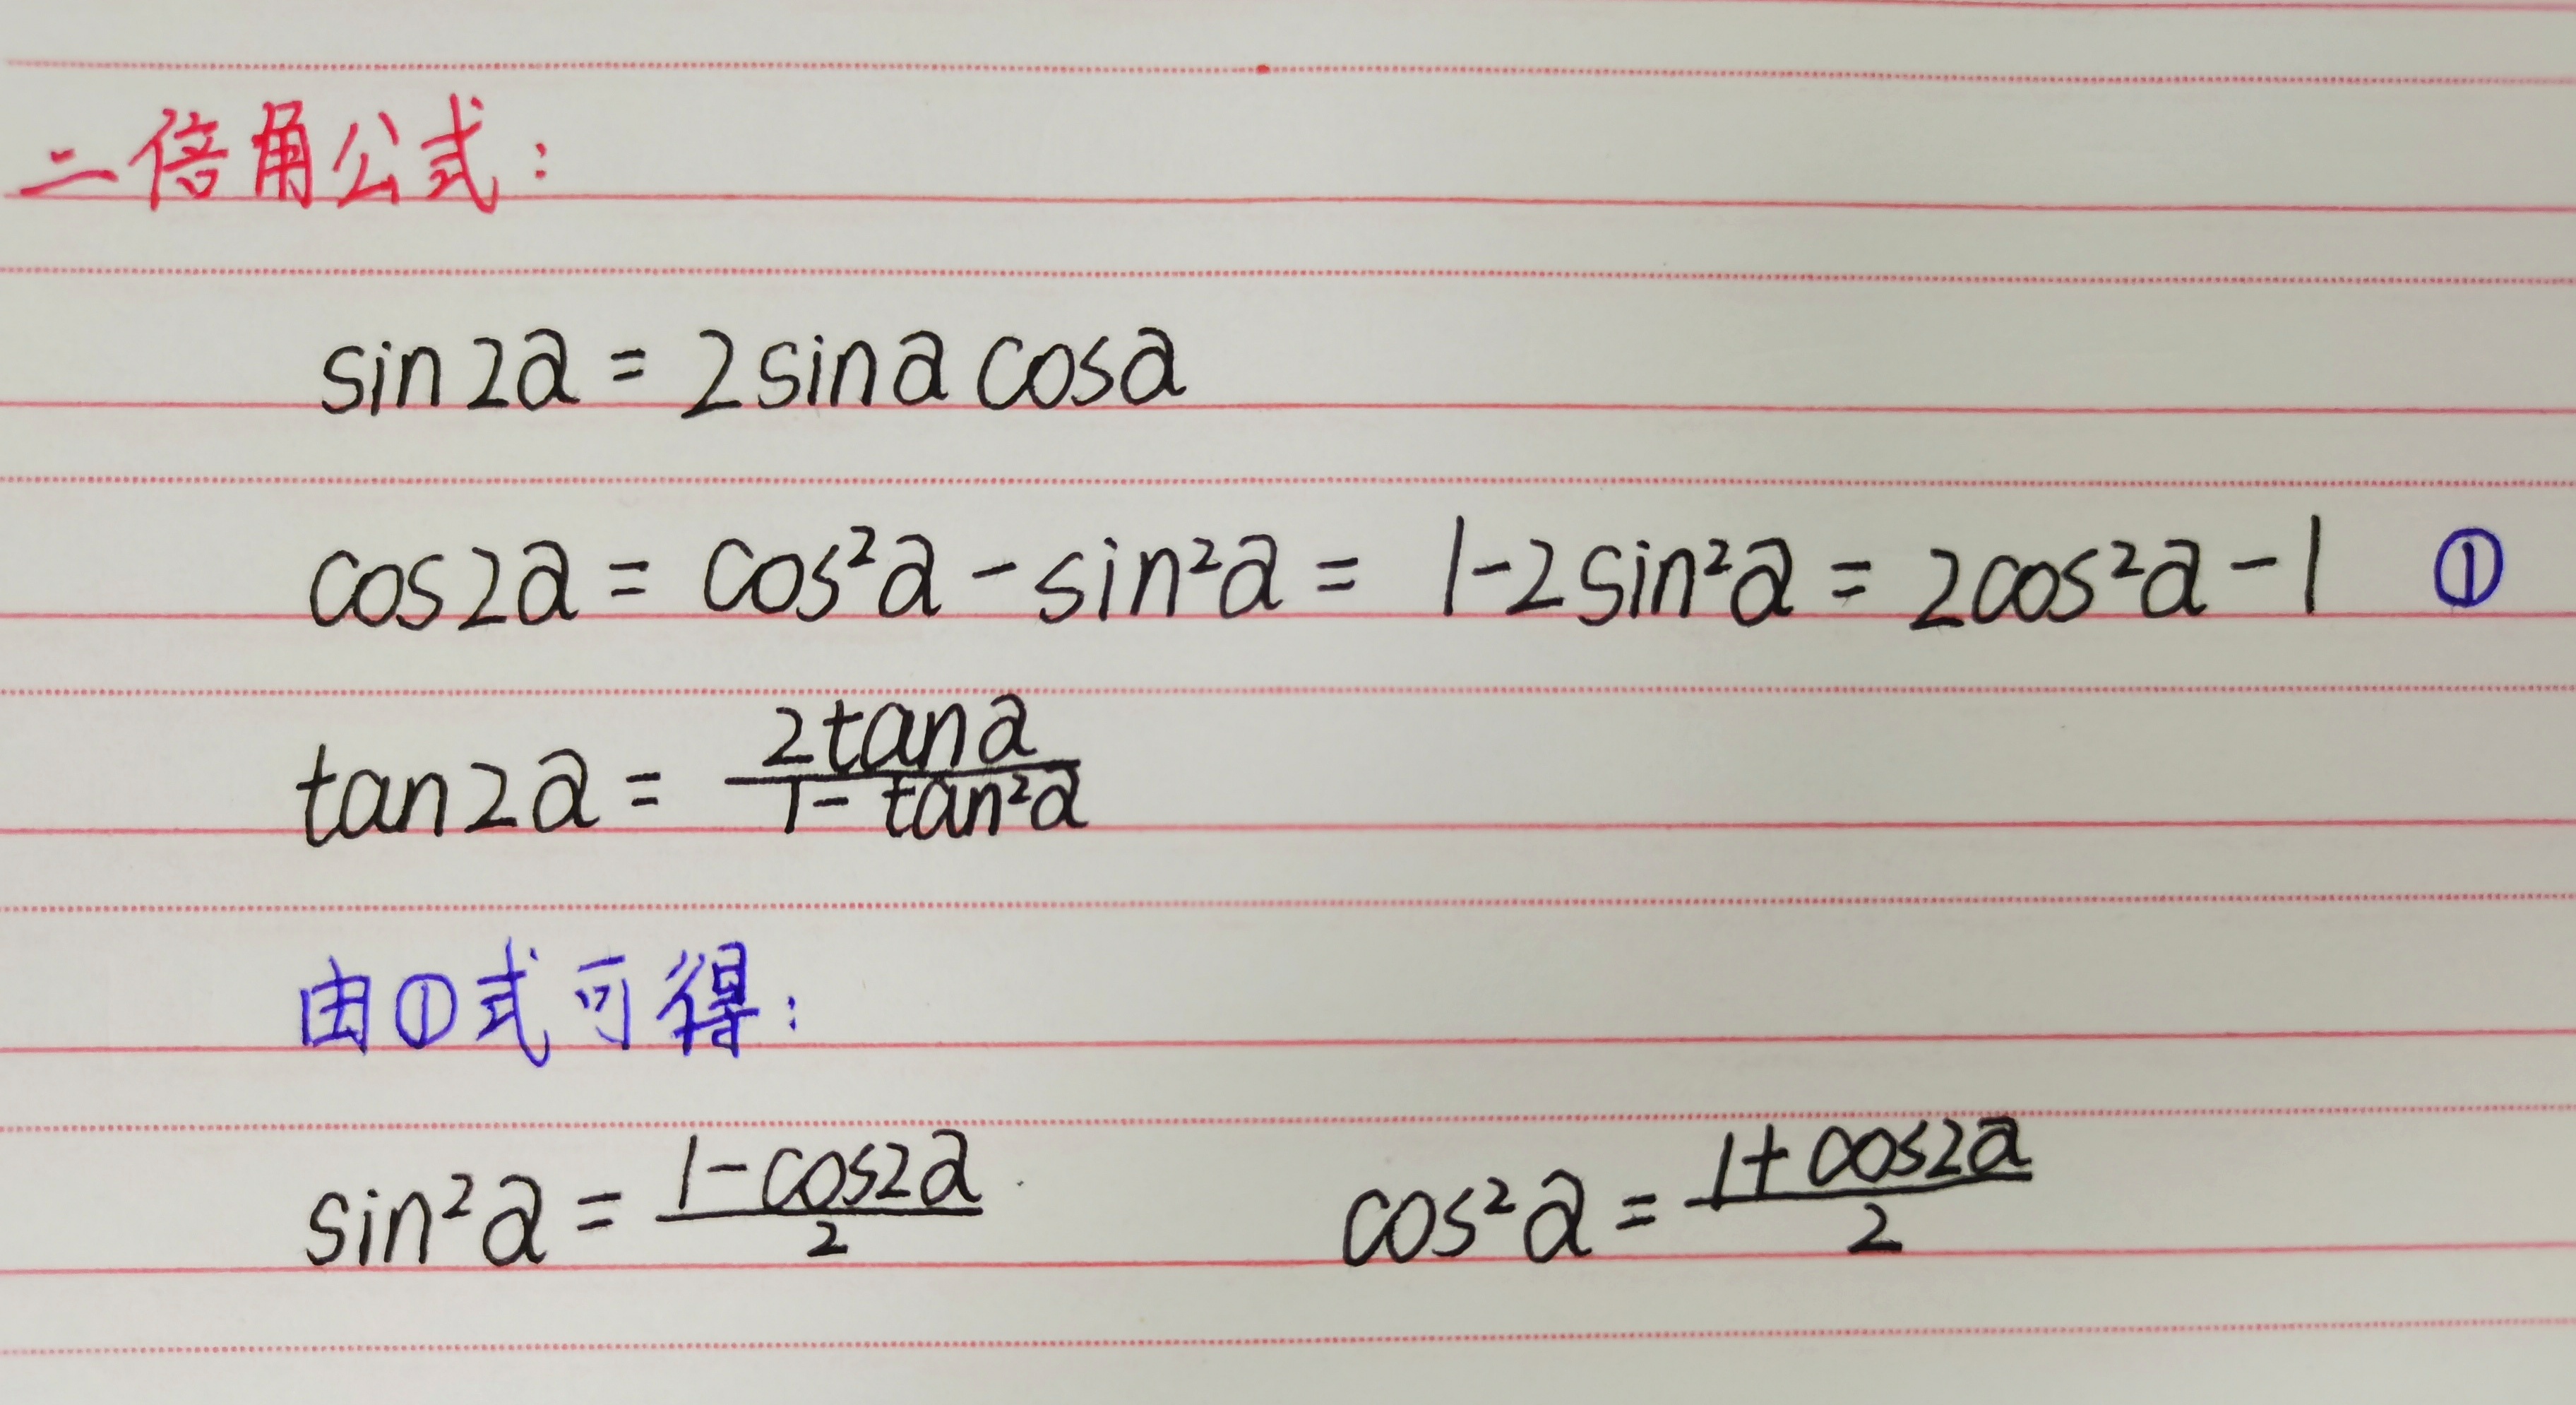 二倍角公式：
sin2a = 2sina cosa
cos2a = cos²a - sin²a = 1-2sin²a = 2cos²a-1 ①
tan2a = 2tana / (1-tan²a)
由①式可得：
sin²a = (1-cos2a) / 2 cos²a = (1+cos2a) / 2